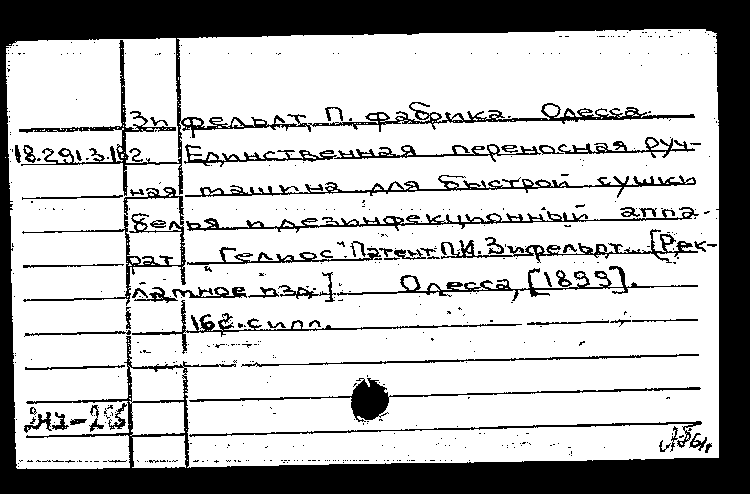 Зифельдт, П. фабрика. Одесса.
18.291.3.182. Единственная переносная руч-
ная машина для быстрой сушки
белья и дезинфекционный аппа-
рат „Гелиос". Патент П.И. Зифельдт. [Рек-
ламное изд.]. Одесса, [1899].
16 с. с илл.